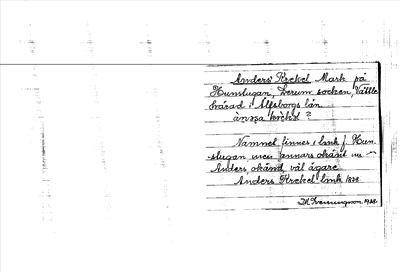 Anders Krekel Mark på
Hunstugan, Lerum socken, Vättle
härad i Älfsborgs län.
änṇa krèkəl ?
Namnet finnes i lmk f. Hun-
stugan, men annars okänt nu
Anders, okänd, väl ägare
Anders Krekel lmk 1838
1938.